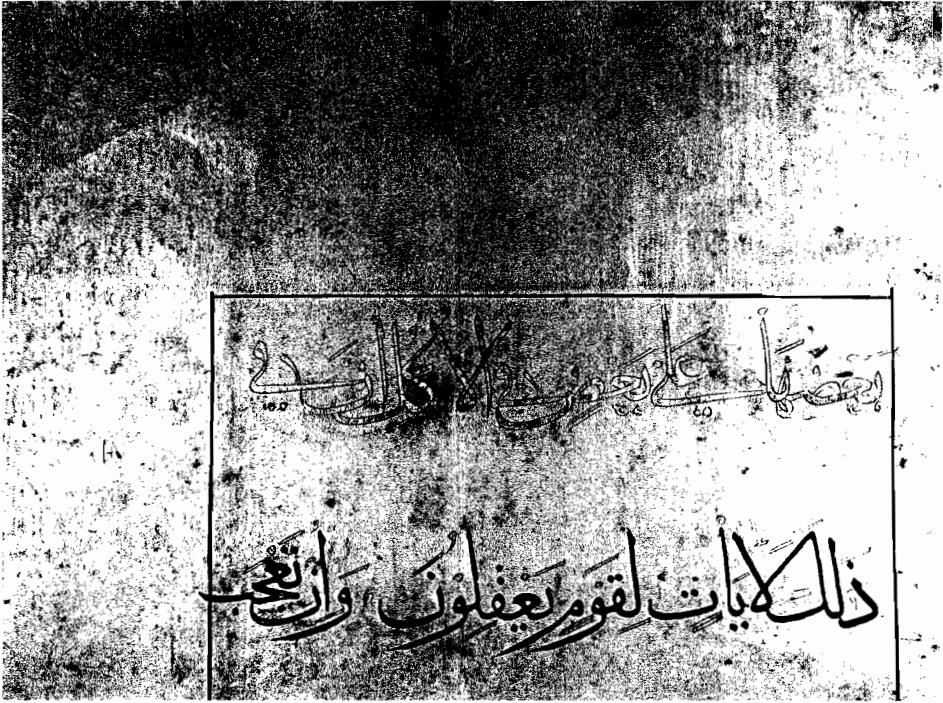 بعضها على بعض في الأكل إن في
ذلك لآيات لقوم يعقلون وإن تعجب